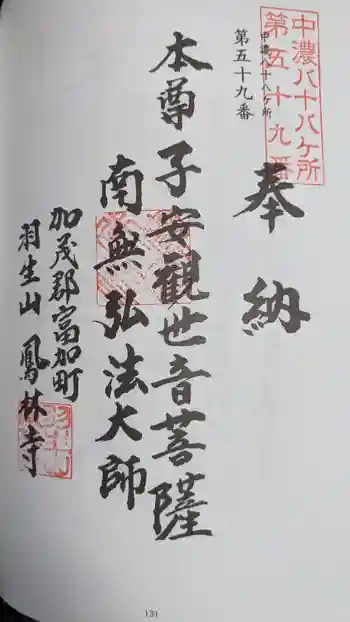 中濃八十八ケ所
第五十九番
中濃八十八ケ所
第五十九番
奉納
本尊子安觀世音菩薩
南無弘法大師
加茂郡富加町
羽生山 鳳林寺
131